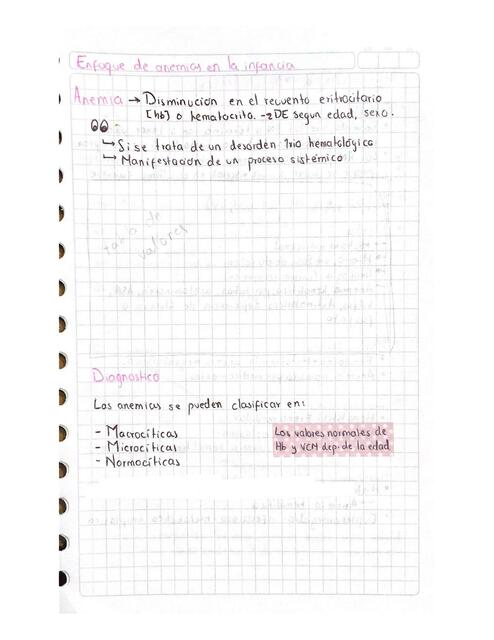 Enfoque de anemias en la infancia
Anemia → Disminución en el recuento eritrocitario
[hb] o hematocrito. -2DE segun edad, sexo.
↳ Si se trata de un desorden 1rio hematológico
↳ Manifestación de un proceso sistémico
tabla de
valores
Diagnostico
Las anemias se pueden clasificar en:
- Macrocíticas
- Microcíticas
- Normocíticas
Los valores normales de
Hb y VCM dep. de la edad